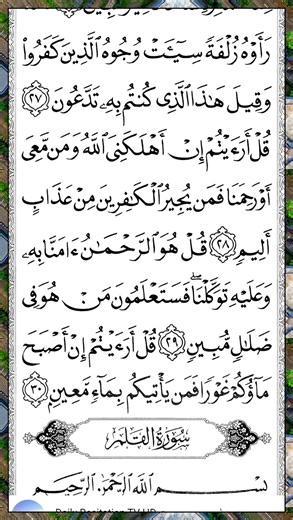 رَأَوْهُ زُلْفَةً سِيٓـَٔتْ وُجُوهُ الَّذِينَ كَفَرُوا۟
وَقِيلَ هَٰذَا الَّذِى كُنتُم بِهِۦ تَدَّعُونَ ﴿٢٧﴾
قُلْ أَرَءَيْتُمْ إِنْ أَهْلَكَنِىَ اللَّهُ وَمَن مَّعِىَ
أَوْ رَحِمَنَا فَمَن يُجِيرُ الْكَٰفِرِينَ مِنْ عَذَابٍ
أَلِيمٍ ﴿٢٨﴾ قُلْ هُوَ الرَّحْمَٰنُ ءَامَنَّا بِهِۦ
وَعَلَيْهِ تَوَكَّلْنَا ۖ فَسَتَعْلَمُونَ مَنْ هُوَ فِى
ضَلَٰلٍ مُّبِينٍ ﴿٢٩﴾ قُلْ أَرَءَيْتُمْ إِنْ أَصْبَحَ
مَآؤُكُمْ غَوْرًا فَمَن يَأْتِيكُم بِمَآءٍ مَّعِينٍۭ ﴿٣٠﴾
سُورَةُ الْقَلَمِ
بِسْمِ اللَّهِ الرَّحْمَٰنِ الرَّحِيمِ